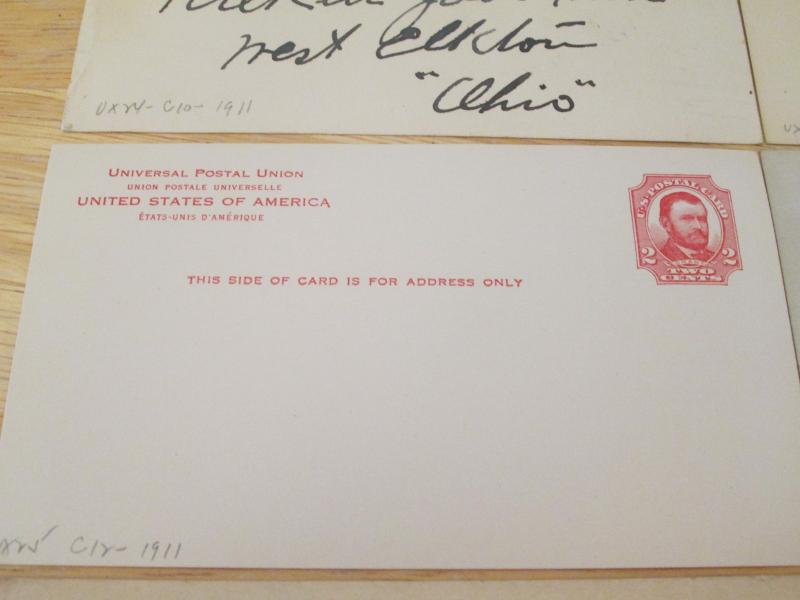 West Elkton
"Ohio"
UX24- C10- 1911
UX
UNIVERSAL POSTAL UNION
UNION POSTALE UNIVERSELLE
UNITED STATES OF AMERICA
ÉTATS-UNIS D'AMÉRIQUE
U.S. POSTAL CARD
2 2
TWO
CENTS
THIS SIDE OF CARD IS FOR ADDRESS ONLY
X25 C12- 1911